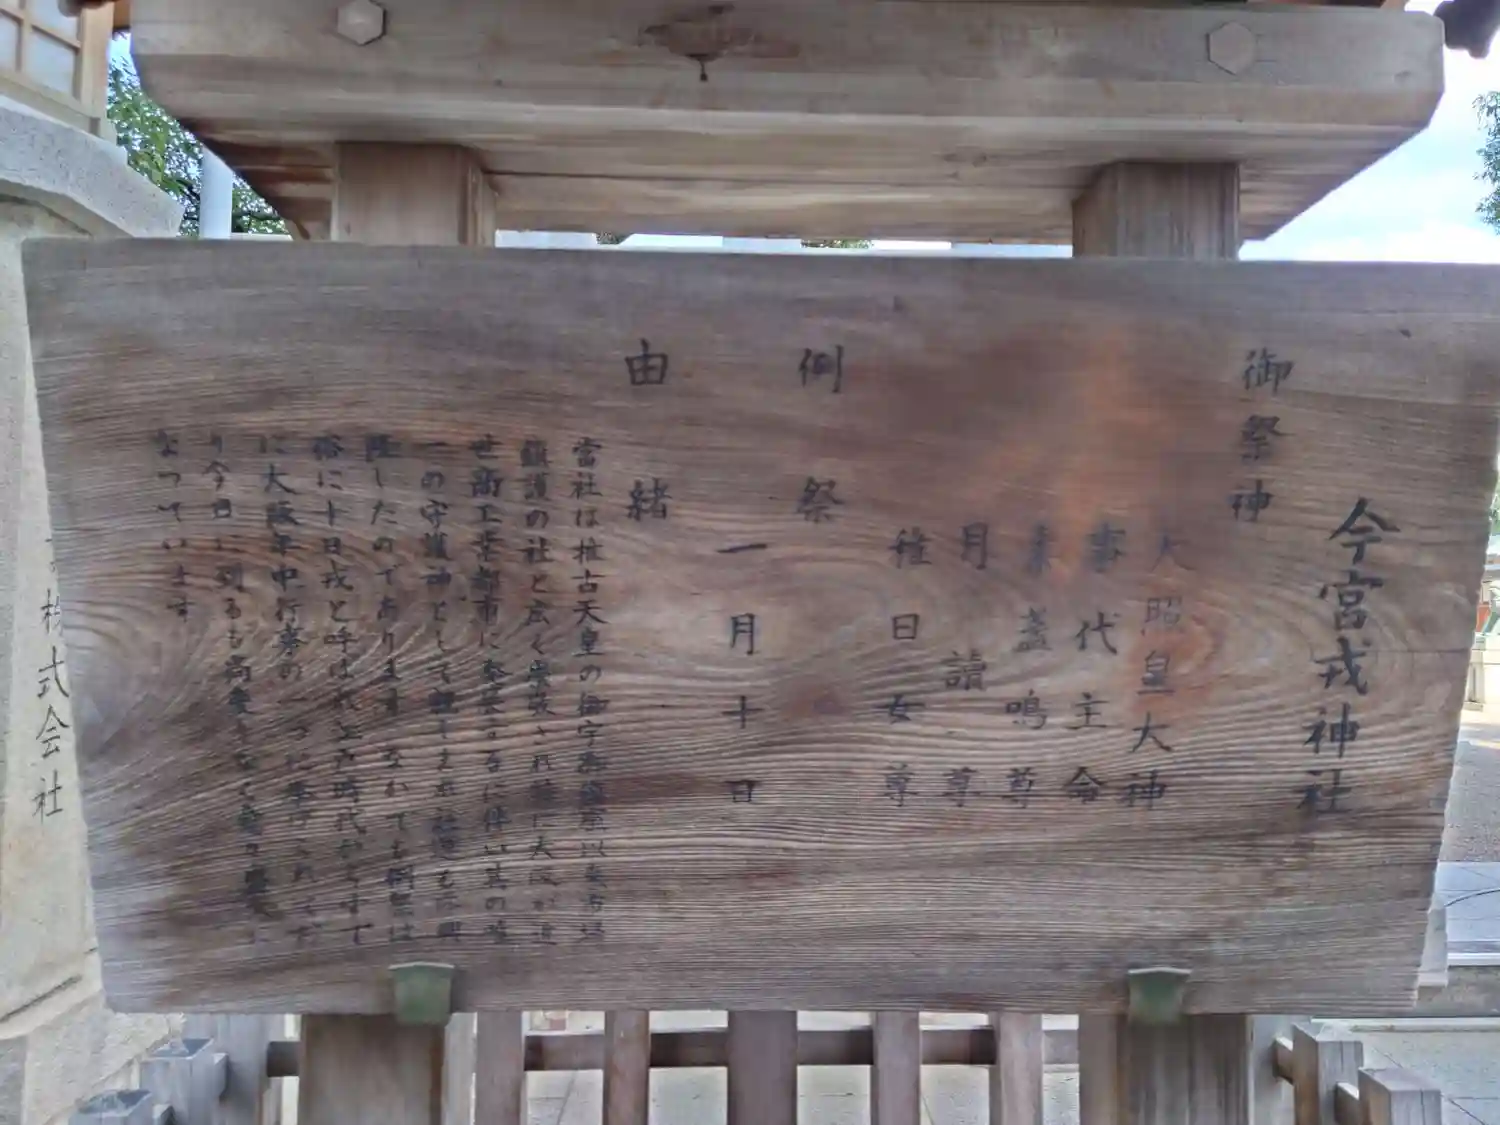 今宮戎神社
御祭神
天照皇大神
事代主命
素盞嗚尊
月讀尊
稚日女尊
例祭
一月十日
由緒
當社は推古天皇の御宇御鎮座以来市場
鎮護の社と広く崇敬され殊に大阪が近
世商工業都市に発展するに伴い其の唯
一の守護神として
隆したのであります なかでも例祭は
俗に十日戎と呼ばれ 時代からすで
に大阪年中行事の一つに
り今日に到るも尚
なつています
株式会社